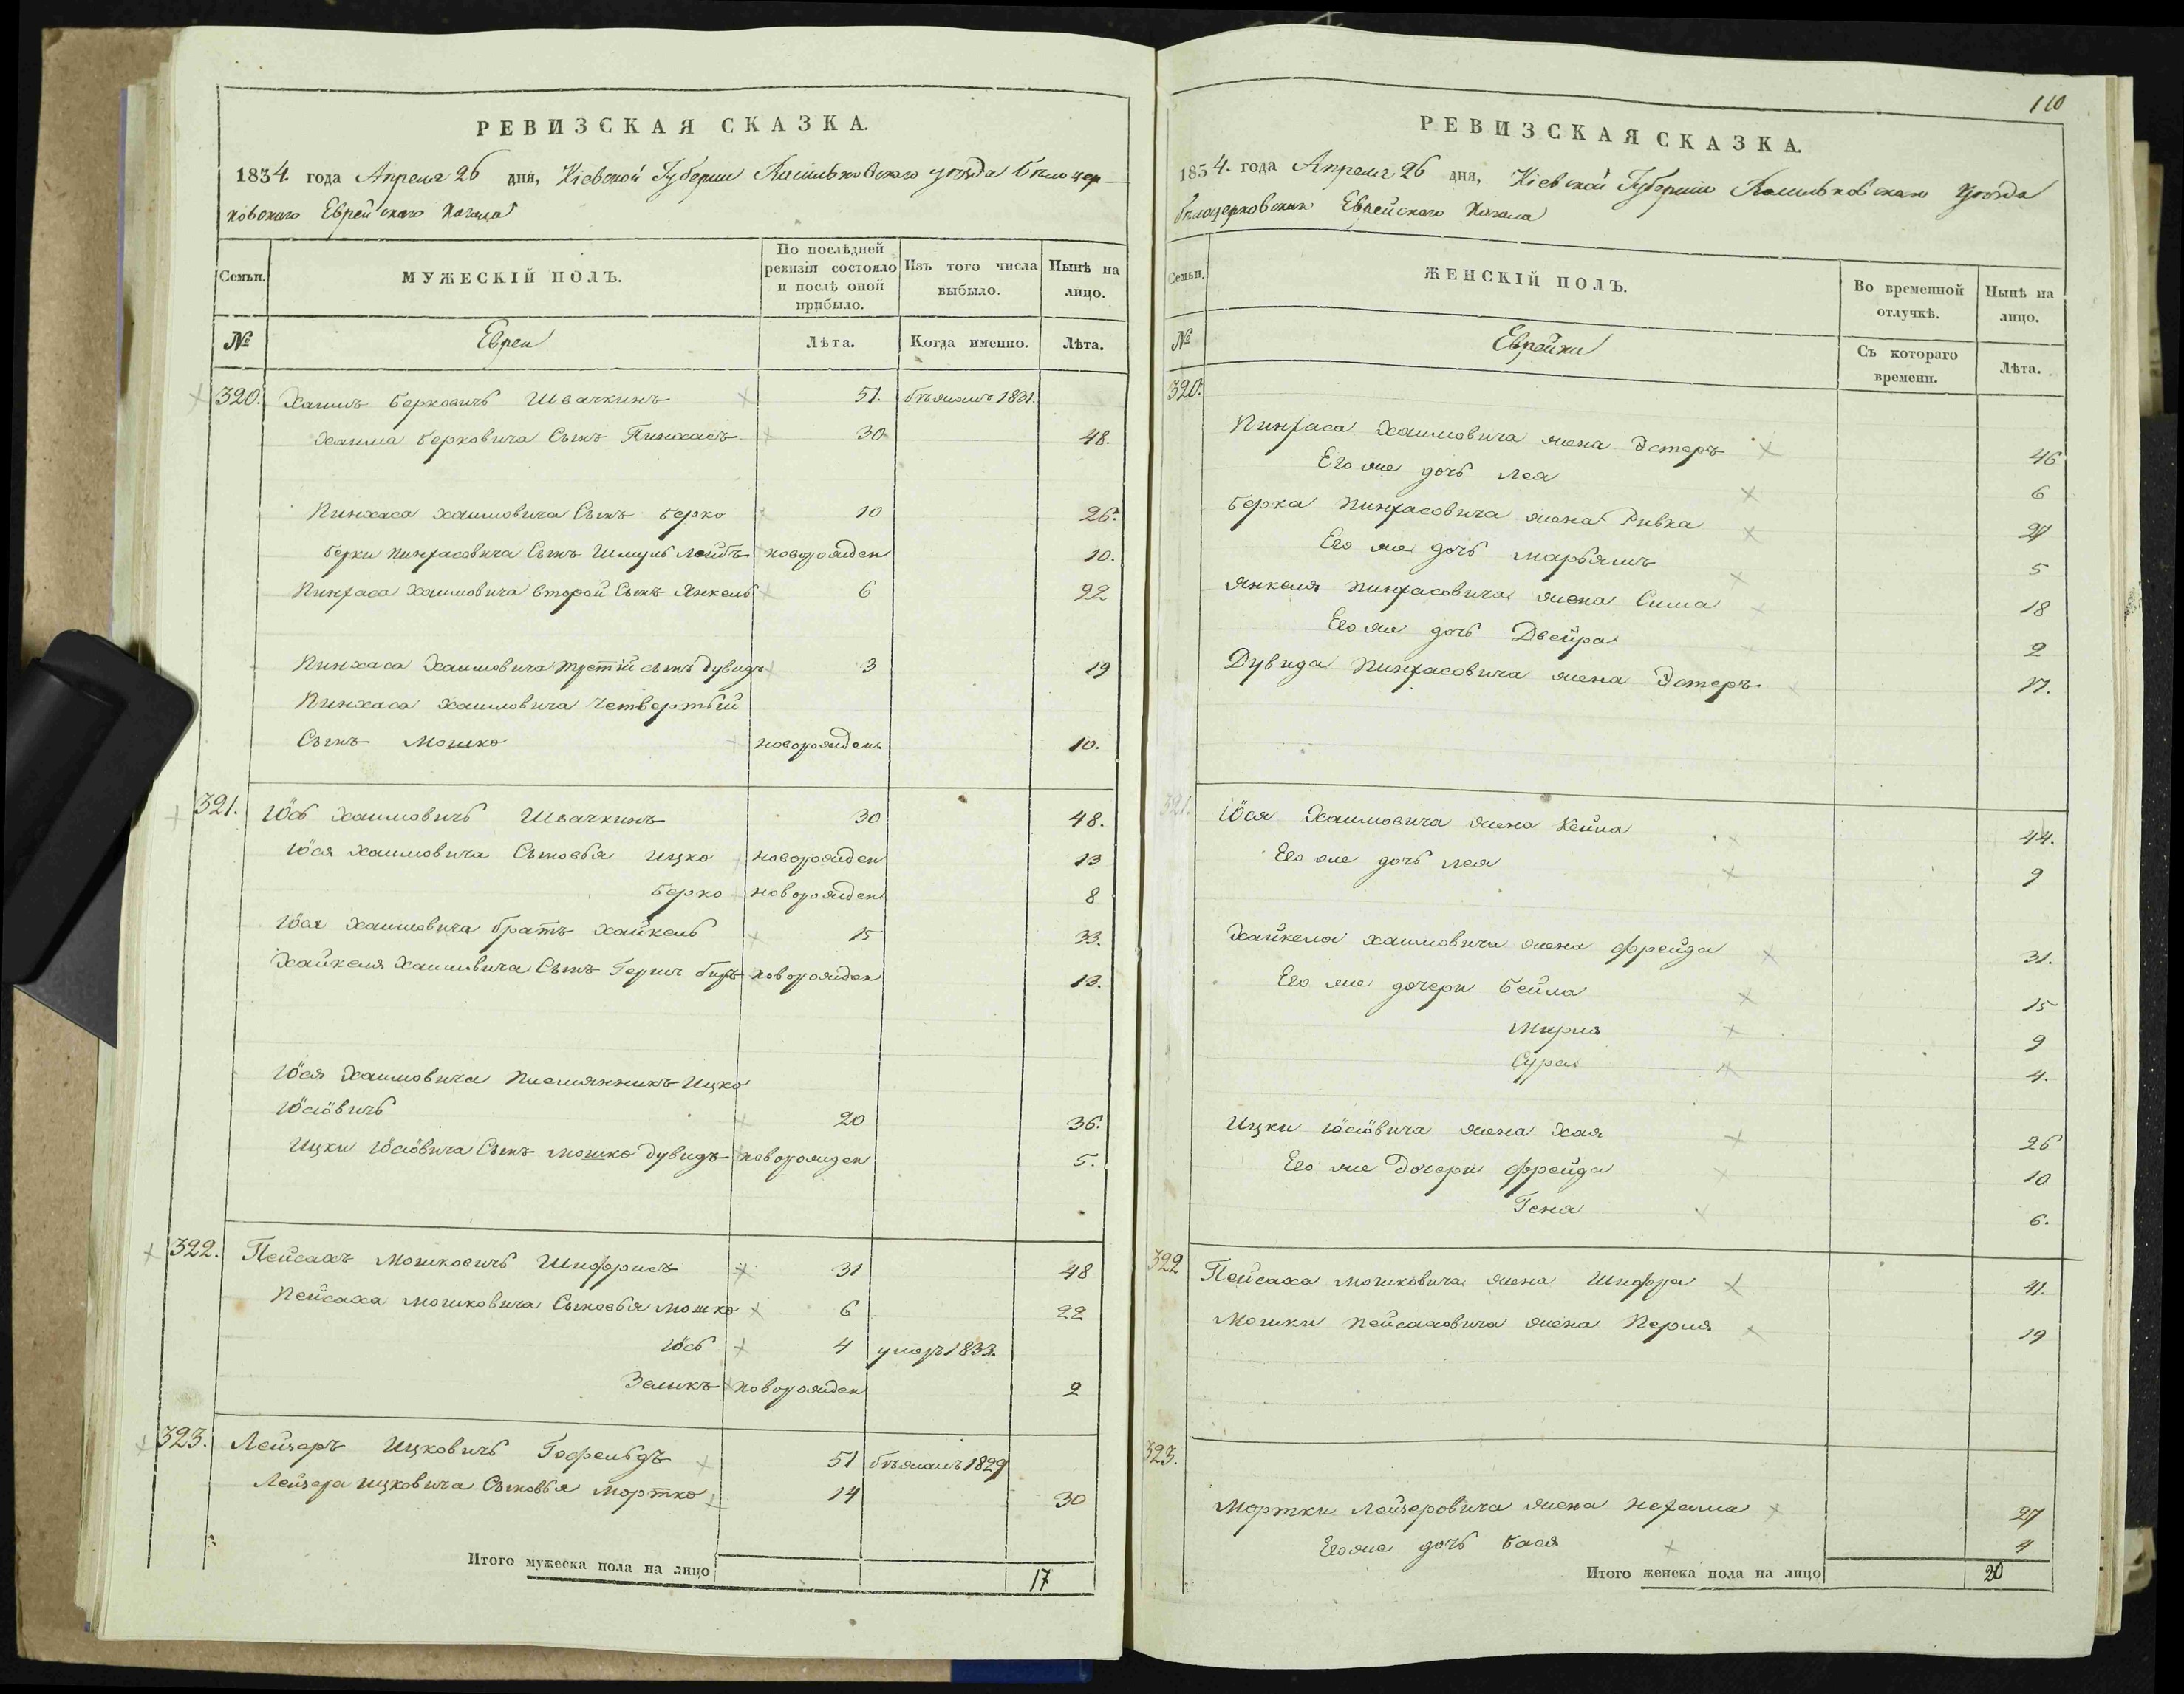 РЕВИЗСКАЯ СКАЗКА.
1834. года Апреля 26 дня, Кіевской Губерніи Васильковского уѣзда Бѣлоцер-
ковского Еврейского Кагала
Семьи.
МУЖЕСКІЙ ПОЛЪ.
По послѣдней ревизіи состояло и послѣ оной прибыло.
Изъ того числа выбыло.
Нынѣ на лицо.
№
Евреи
Лѣта.
Когда именно.
Лѣта.
320. Хаимъ Берковичъ Швачкинъ 51. бѣжалъ 1821.
Хаима Берковича Сынъ Пинхасъ 30 48.
Пинхаса Хаимовича Сынъ Берко 10 26.
Берки Пинхасовича Сынъ Шмуль Лейбъ новорожден 10.
Пинхаса Хаимовича второй Сынъ Янкель 6 22
Пинхаса Хаимовича третій сынъ Дувидъ 3 19
Пинхаса Хаимовича четвертый
Сынъ Мошко новорожденъ 10.
321. Іось Хаимовичъ Швачкинъ 30 48.
Іося Хаимовича Сыновья Ицко новорожден 13
Берко новорожден 8
Іося Хаимовича братъ Хайкель 15 33.
Хайкеля Хаимовича Сынъ Герш новорожден 13.
Іося Хаимовича племянникъ Ицко
Іосіовичъ 20 36.
Ицки Іосіовича Сынъ Мошко Дувидъ новорожден 5.
322. Пейсахъ Мошковичъ Шифрисъ 31 48
Пейсаха Мошковича Сыновья Мошко 6 22
Іось 4 умеръ 1833.
Зеликъ новорожден 2
323. Лейзеръ Ицковичъ Гофельдъ 51 бѣжалъ 1829
Лейзера Ицковича Сыновья Мортко 14 30
Итого мужеска пола на лицо 17
110
РЕВИЗСКАЯ СКАЗКА.
1834. года Апреля 26 дня, Кіевской Губерніи Васильковскаго Уѣзда
Бѣлоцерковскаго Еврейскаго Кагала
Семьи.
ЖЕНСКІЙ ПОЛЪ.
Во временной отлучкѣ.
Нынѣ на лицо.
№
Еврейки
Съ котораго времени.
Лѣта.
320.
Пинхаса Хаимовича жена Эстеръ 46
Его же дочь Лея 6
Берка Пинхасовича жена Ривка 27
Его же дочь Марьямъ 5
Янкеля Пинхасовича жена Сима 18
Его же дочь Двейра 2
Дувида Пинхасовича жена Эстеръ 17.
321. Іося Хаимовича жена Кейла 44.
Его же дочь Лея 9
Хайкеля Хаимовича жена Фрейда 31.
Его же дочери Бейла 15
Мирля 9
Сура 4.
Ицки Іосіовича жена Хая 26
Его же Дочери Фрейда 10
Геня 6.
322 Пейсаха Мошковича жена Шифра 41.
Мошки Пейсаховича жена Перля 19
323.
Мортки Лейзеровича жена Нехама 27
Его же дочь Бася 4
Итого женска пола на лицо 20